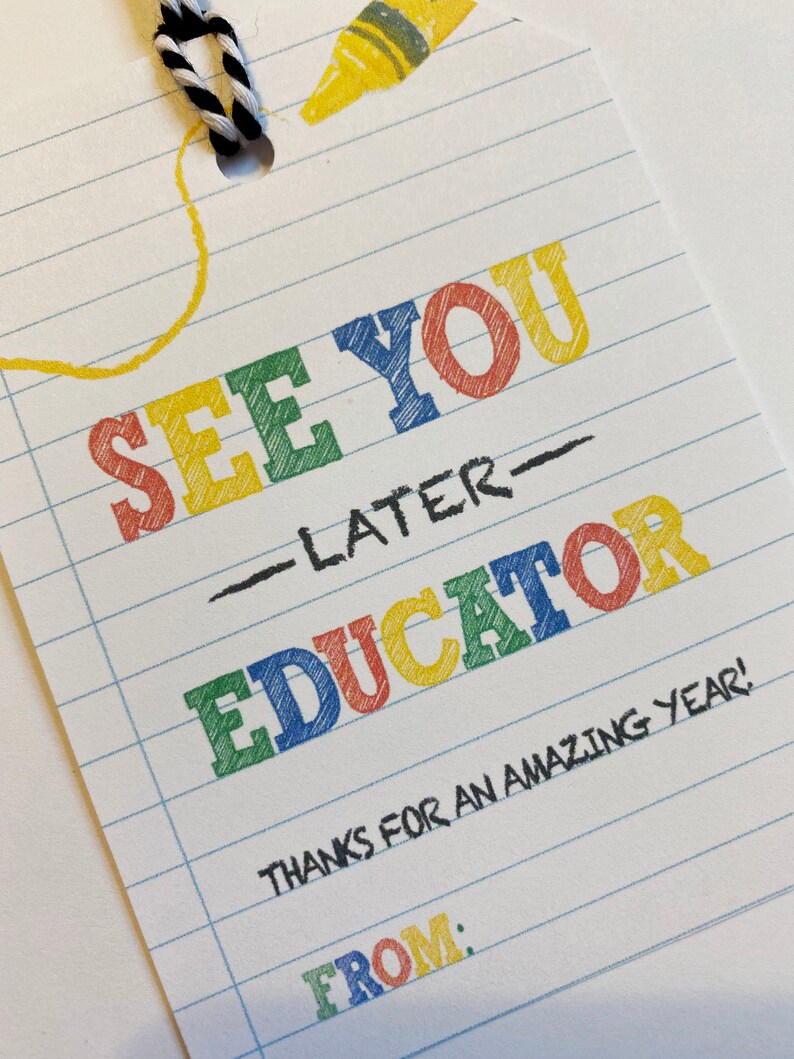 SEE YOU
—LATER—
EDUCATOR
THANKS FOR AN AMAZING YEAR!
FROM: